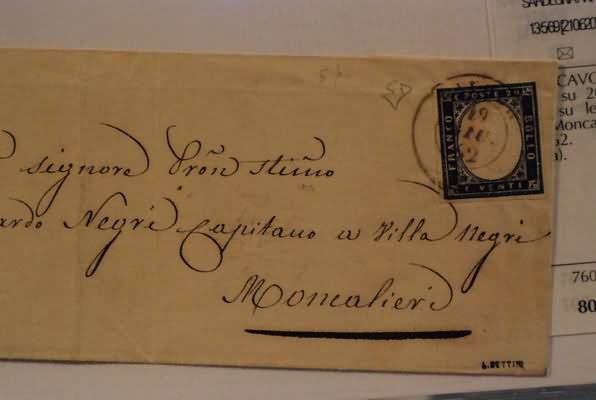 SARDEGNA
13569|210620
CAVO
su 20
su le
Monca
62.
a).
760
80
C. POSTE 20
FRANCO
BOLLO
C. VENTI
19
LUG
62
signore Pron stimo
ardo Negri Capitano a Villa Negri
Moncalieri
G. BETTINI